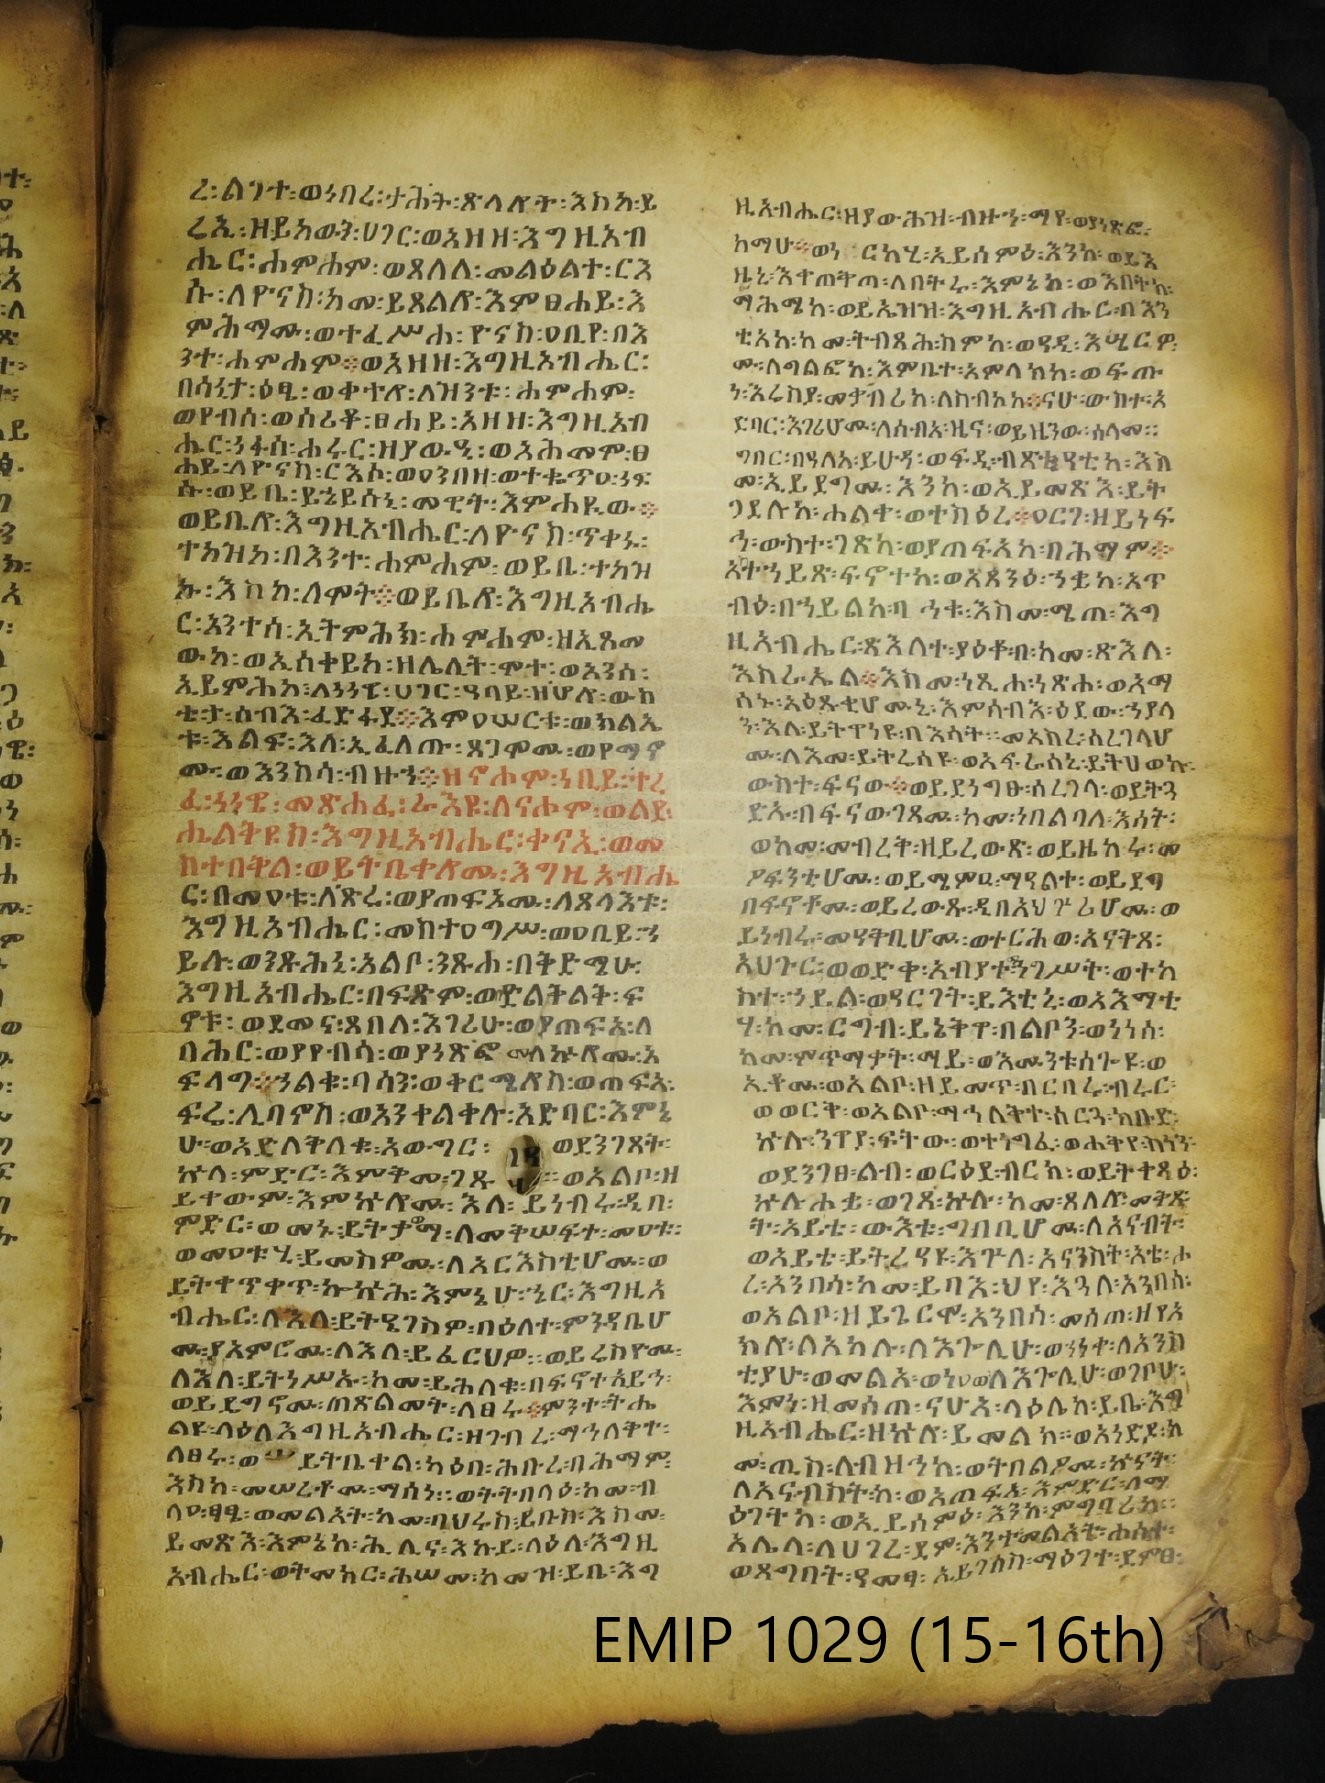 ረ፡ልገተ፡ወነበረ፡ታሕት፡ጽላሎት፡እስከ፡ይ
ሬኢ፡ዘይአውት፡ሀገር፡ወአዘዘ፡እግዚአብ
ሔር፡ሐምሐም፡ወጸለለ፡መልዕልተ፡ርእ
ሱ፡ለዮናስ፡ከመ፡ይጸልሎ፡እምፀሐይ፡እ
ምሕማሙ፡ወተፈሥሐ፡ዮናስ፡ዐቢየ፡በእ
ንተ፡ሐምሐም፨ወአዘዘ፡እግዚአብሔር፡
በሳኒታ፡ዕፄ፡ወቀተሎ፡ለዝንቱ፡ሐምሐም፡
ወየብሰ፡ወሰሪቆ፡ፀሐይ፡አዘዘ፡እግዚአብ
ሔር፡ነፋስ፡ሐሩር፡ዘያውዒ፡ወአሕመሞ፡ፀ
ሐይ፡ለዮናስ፡ርእሶ፡ወዐንበዘ፡ወተቈጥዐ፡ነፍ
ሱ፡ወይቤ፡ይኄይሰኒ፡መዊት፡እምሐዪው፨
ወይቤሎ፡እግዚአብሔር፡ለዮናስ፡ጥቀኑ፡
ተከዝከ፡በእንተ፡ሐምሐም፡ወይቤ፡ተከዝ
ኩ፡እስከ፡ለሞት፨ወይቤሎ፡እግዚአብሔ
ር፡አንተሰ፡ኢትምሕክ፡ሐምሐም፡ዘኢጻመ
ውከ፡ወኢሰቀይከ፡ዘሌሊት፡ሞተ፡ወአንሰ፡
ኢይምሕከ፡ለነነዌ፡ሀገር፡ዓባይ፡ዘሀሎ፡ውስ
ቴታ፡ሰብእ፡ፈድፋደ፨እምዐሠርቱ፡ወክልኤ
ቱ፡እልፍ፡እለ፡ኢፈለጡ፡ጸጋሞሙ፡ወየማኖ
ሙ፡ወእንስሳ፡ብዙኅ፨ዘናሆም፡ነቢይ፡ተረ
ፈ፡ነነዌ፡መጽሐፈ፡ራእዩ፡ለናሆም፡ወልደ፡
ሔልትዩስ፡እግዚአብሔር፡ቀናኢ፡ወመ
ስተበቅል፡ወይትቤቀሎሙ፡እግዚአብሔ
ር፡በመዐቱ፡ለጽረ፡ወያጠፍኦሙ፡ለጸላእቱ፡
እግዚአብሔር፡መስተዐግሥ፡ወዐቢይ፡ኀ
ይሉ፡ወንጹሕኒ፡አልቦ፡ንጹሐ፡በቅድሜሁ፡
እግዚአብሔር፡በፍጽም፡ወድልቅልቅ፡ፍ
ኖቱ፡ወደመና፡ጸበለ፡እገሪሁ፡ወያጠፍአ፡ለ
ባሕር፡ወያየብሳ፡ወያነጽፎ መለኵሎሙ፡አ
ፍላግ፨ኀልቁ፡ባሳን፡ወቀርሜሎስ፡ወጠፍአ፡
ፍሬ፡ሊባኖስ፡ወአንቀልቀሉ፡አድባር፡እምኔ
ሁ፡ወአድለቅለቁ፡አውግር፡ ወደንገጸት፡
ኵላ፡ምድር፡እምቅመ፡ገጹ ፡፡ወአልቦ፡ዘ
ይቀውም፡እምኵሎሙ፡እለ፡ይነብሩ፡ዲበ፡
ምድር፡ወመኑ፡ይትቃወማ፡ለመቅሠፍተ፡መዐቱ፡
ወመዐቱሂ፡ይመስዎሙ፡ለአርእስቲሆሙ፡ወ
ይትቀጥቀጥ፡ኰኵሕ፡እምኔሁ፡ኄር፡እግዚአ
ብሔር፡ለእለ፡ይትዔገስዎ፡በዕለተ፡ምንዳቤሆ
ሙ፡ያአምሮሙ፡ለእለ፡ይፈርህዎ፡፡ወይሬስዮሙ፡
ለእለ፡ይትነሥኡ፡ከመ፡ይሕለቁ፡በፍኖተ፡አይኅ፡
ወይዴግኖሙ፡ጠጽልመት፡ለፀሩ፨ምንተ፡ትሔ
ልዩ፡ላዕለ፡እግዚአብሔር፡ዘገብረ፡ማኅለቅተ፡
ለፀሩ፡ ይትቤቀል፡ካዕበ፡ሕቡረ፡በሕማም፡
እስከ፡መሠረቶሙ፡ማሰነ፡፡ወትትበላዕ፡ከመ፡ብ
ይመጽእ፡እምኔከ፡ሕሊና፡እኩይ፡ላዕለ፡እግዚ
አብሔር፡ወትመክር፡ሕሠመ፡ከመዝ፡ይቤ፡እግ
ዚአብሔር፡ዘያውሕዝ፡ብዙኅ፡ማየ፡ወያነጽፎ፡
ከማሁ፨ ኢይሰምዕ፡እንከ፡ወይእ
ዜኒ፡እቀጠቅጣ፡ለበትሩ፡እምኔከ፡ወእበትክ፡
ማሕሜከ፡ወይኤዝዝ፡እግዚአብሔር፡በእን
ቲአከ፡ከመ፡ትብጻሕ፡ስምከ፡ወዓዲ፡እሤርዎ
ሙ፡ለግልፎከ፡እምቤተ፡አምላክከ፡ወፍጡ
ነ፡እሬስያ፡መቃብሪከ፡ለስብኦከ፨ናሁ፡ውስተ፡አ
ድባር፡እገሪሆሙ፡ለሰብአ፡ዜና፡ወይዜንው፡ሰላመ፡፡
ግበር፡በዓለአ፡ይሁዳ፡ወፍዲ፡ብጽዓቲከ፡እስ
መ፡ኢይደግሙ፡እንከ፡ወኢይመጽእ፡ይት
ገደሉከ፡ሐልቀ፡ወተስዕረ፨ዐርገ፡ዘይነፍ
ኅ፡ውስተ፡ገጽከ፡ወያጠፍአከ፡በሕማም፨
አተኀይጽ፡ፍኖተከ፡ወአጸንዕ፡ኀቌከ፡አጥ
ብዕ፡በኀይልከ፡ባ ኅቱ፡እስመ፡ሜጠ፡እግ
ዚአብሔር፡ጽእለተ፡ያዕቆብ፡ከመ፡ጽእለ፡
እስራኤል፨እስመ፡ነጺሐ፡ነጽሐ፡ወአማ
ሰኑ፡አዕጹቂሆሙኒ፡እምሰብእ፡ዕደው፡ኀያላ
ን፡እለ፡ይትዋነዩ፡በእሳት፡፡መአከረ፡ሰረገላሆ
ሙ፡ለእመ፡ይትረሰዩ፡ወአፍራስኒ፡ይትሀወኩ፡
ውስተ፡ፍናው፨ወይደነግፁ፡ሰረገላ፡ወይትጓ
ድኡ፡በፍናው፡ገጾሙ፡ከመ፡ነበልባለ፡እሳት፡
ወከመ፡መብረቅ፡ዘይረውጽ፡ወይዜከሩ፡መ
ኳፍንቲሆሙ፡ወይሜምዑ፡ማዓልተ፡ወይደግ
በፍኖቶሙ፡ወይረውጹ፡ዲበ፡አህጉሪሆሙ፡ወ
ይነብሩ፡መዓቅቢሆሙ፡ወተርሕወ፡አናትጸ፡
አህጉር፡ወወድቀ፡አብያተ፡ነገሥት፡ወተከ
ስተ፡ኀይል፡ወዓርገት፡ይእቲኒ፡ወአእማቲ
ሃ፡ከመ፡ርግብ፡ይኔቅዋ፡በልቦን፡ወነነሰ፡
ከመ፡ምጥማቃት፡ማይ፡ወእሙንቱሰ፡ጐዩ፡ወ
ኢቆሙ፡ወአልቦ፡ዘይመጥ፡በርበሩ፡ብሩር፡
ወወርቅ፡ወአልቦ፡ማኅለቅተ፡ሰርጓ፡ክቡድ፡
ኵሉ፡ንዋያ፡ፍትው፡ወተነግፈ፡ወሐቅየ፡ክነነ፡
ወደንገፀ፡ልብ፡ወርዕደ፡ብርከ፡ወይትተጻዕ፡
ኵሉ፡ሐቌ፡ወገጸ፡ኵሉ፡ከመ፡ጸለሎ፡መቅጹ
ት፡አይቴ፡ውእቱ፡ግበቢሆሙ፡ለአናብት፡
ወአይቴ፡ይትረዓዩ፡እጕለ፡አናንስት፡አቴ፡ሖ
ረ፡አንበሳ፡ከመ፡ይባእ፡ህየ፡እጓለ፡አንበሳ፡
ወአልቦ፡ዘይጌርሞ፡አንበሳ፡መሰጠ፡ዘየአ
ክሎ፡ለአከሉ፡ለእጐሊሁ፡ወኀነቀ፡ለአንስ
ቲያሁ፡ወመልአ፡ለእጐሊሁ፡ወገቦሁ፡
እምነ፡ዘመሰጠ፡ናሁአ፡ላዕሌከ፡ይቤ፡እግ
ዚአብሔር፡ዘኵሎ፡ይመልክ፡፡ወአነድድ፡ከ
መ፡ጢስ፡ለብዘኅከ፡ወትበልዖሙ፡ኵናት፡
ለአናብስት፡ከ፡ወአጠፍእ፡እምድር፡ለማ
ዕገትከ፡ወኢይሰምዕ፡እንከ፡ምግባሪከ፡፡
አሌላ፡ለሀገረ፡ደም፡እንተ፡መልአቴ፡ሐሰት፡